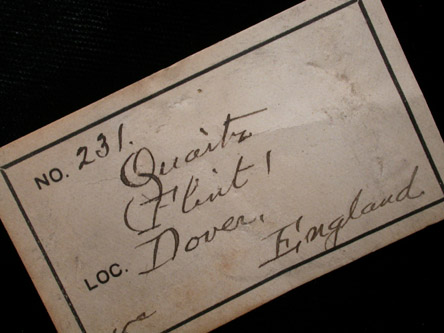 NO. 231.
Quartz
(Flint)
LOC. Dover,
England